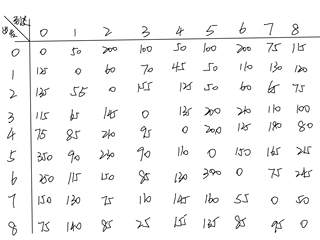 到达 0 1 2 3 4 5 6 7 8
出发
0 0 50 200 100 50 100 200 75 115
1 125 0 60 70 45 50 110 130 120
2 135 55 0 155 125 50 60 65 75
3 115 65 145 0 135 200 210 110 100
4 75 85 210 95 0 200 125 180 80
5 350 90 230 90 110 0 150 165 245
6 250 115 150 85 130 300 0 75 245
7 150 130 75 110 145 160 55 0 50
8 75 140 85 25 155 135 85 95 0